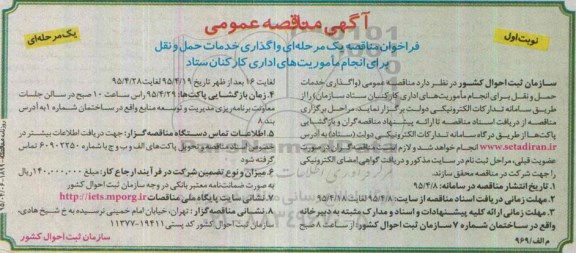 آگهی مناقصه عمومی
نوبت اول
یک مرحله‌ای
فراخوان مناقصه یک مرحله‌ای واگذاری خدمات حمل و نقل
برای انجام ماموریت‌های اداری کارکنان ستاد
سازمان ثبت احوال کشور در نظر دارد مناقصه عمومی (واگذاری خدمات
حمل و نقل برای انجام ماموریت‌های اداری کارکنان ستاد سازمان) را از
طریق سامانه تدارکات الکترونیکی دولت برگزار نماید. مراحل برگزاری
مناقصه از دریافت اسناد مناقصه تا ارائه پیشنهاد مناقصه‌گران و بازگشایی
پاکت‌ها از طریق درگاه سامانه تدارکات الکترونیکی دولت (ستاد) به آدرس
www.setadiran.ir انجام خواهد شد و لازم است
عضویت قبلی، مراحل ثبت نام در سایت مذکور و دریافت گواهی امضای الکترونیکی
را جهت شرکت در مناقصه محقق سازند.
۱. تاریخ انتشار مناقصه در سامانه: ۹۵/۴/۸
۲. مهلت زمانی دریافت اسناد مناقصه از سایت: ۹۵/۴/۸ لغایت ۹۵/۴/۱۸
۳. مهلت زمانی ارائه کلیه پیشنهادات و اسناد و مدارک مثبته به دبیرخانه
واقع در ساختمان شماره ۷ سازمان ثبت احوال کشور: از ساعت ۸ صبح
لغایت ۱۶ بعد از ظهر تاریخ ۹۵/۴/۱۹ لغایت ۹۵/۴/۲۸
۴. زمان بازگشایی پاکت‌ها: ۹۵/۴/۲۹ راس ساعت ۱۰ صبح در سالن جلسات
معاونت برنامه‌ریزی مدیریت و توسعه منابع واقع در ساختمان شماره ۱ به آدرس
بند ۸
۵. اطلاعات تماس دستگاه مناقصه‌گزار: جهت دریافت اطلاعات بیشتر در
پاکت‌های الف و ب و ج با شماره ۶۰۹۰۲۲۵۰ تماس
گرفته شود
۶. میزان و نوع تضمین شرکت در فرآیند ارجاع کار: مبلغ ۱۴۰,۰۰۰,۰۰۰ ریال
به صورت ضمانت‌نامه معتبر بانکی در وجه سازمان ثبت احوال کشور
۷. نشانی سایت پایگاه ملی مناقصات http://iets.mporg.ir
۸. نشانی مناقصه گزار: تهران، خیابان امام خمینی نرسیده به خ شیخ هادی،
سازمان ثبت احوال کشور کد پستی ۱۹۴۱۱-۱۱۳۷۷
سازمان ثبت احوال کشور
م الف/۹۶۹